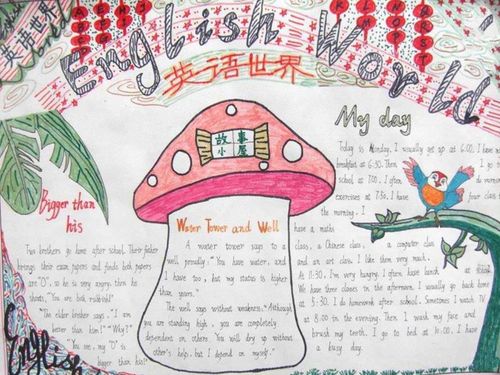 English World
英语世界
英语世界
My day
Today is Monday. I usually get up at 6:00. I have
breakfast at 6:30. Then
school at 7:00. I often
exercises at 7:30. I have four class
the morning. I
have a maths
class, a Chinese class, a computer class
and an art class. I like them very much.
At 11:30, I'm very hungry. I often have lunch at school.
We have three classes in the afternoon. I usually go back home
at 5:30. I do homework after school. Sometimes I watch TV
at 8:00 in the evening. Then I wash my face and
brush my teeth. I go to bed at 10:00. I have
a busy day.
故事
小屋
Water Tower and Well
A water tower says to a
well proudly. "You have water, and
I have too, but my status is higher
than yours."
The well says without weakness. "Although
you are standing high, you are completely
dependent on others. You will dry up without
other's help, but I depend on myself."
Bigger than
his
Two brothers go home after school. Their father
brings their exam papers and finds both papers
are "0", so he is very angry. then he
shouts, "You are both rubbish!"
The elder brother says. "I am
better than him!" "Why?"
"You see, my "0" is
bigger than his!"
English